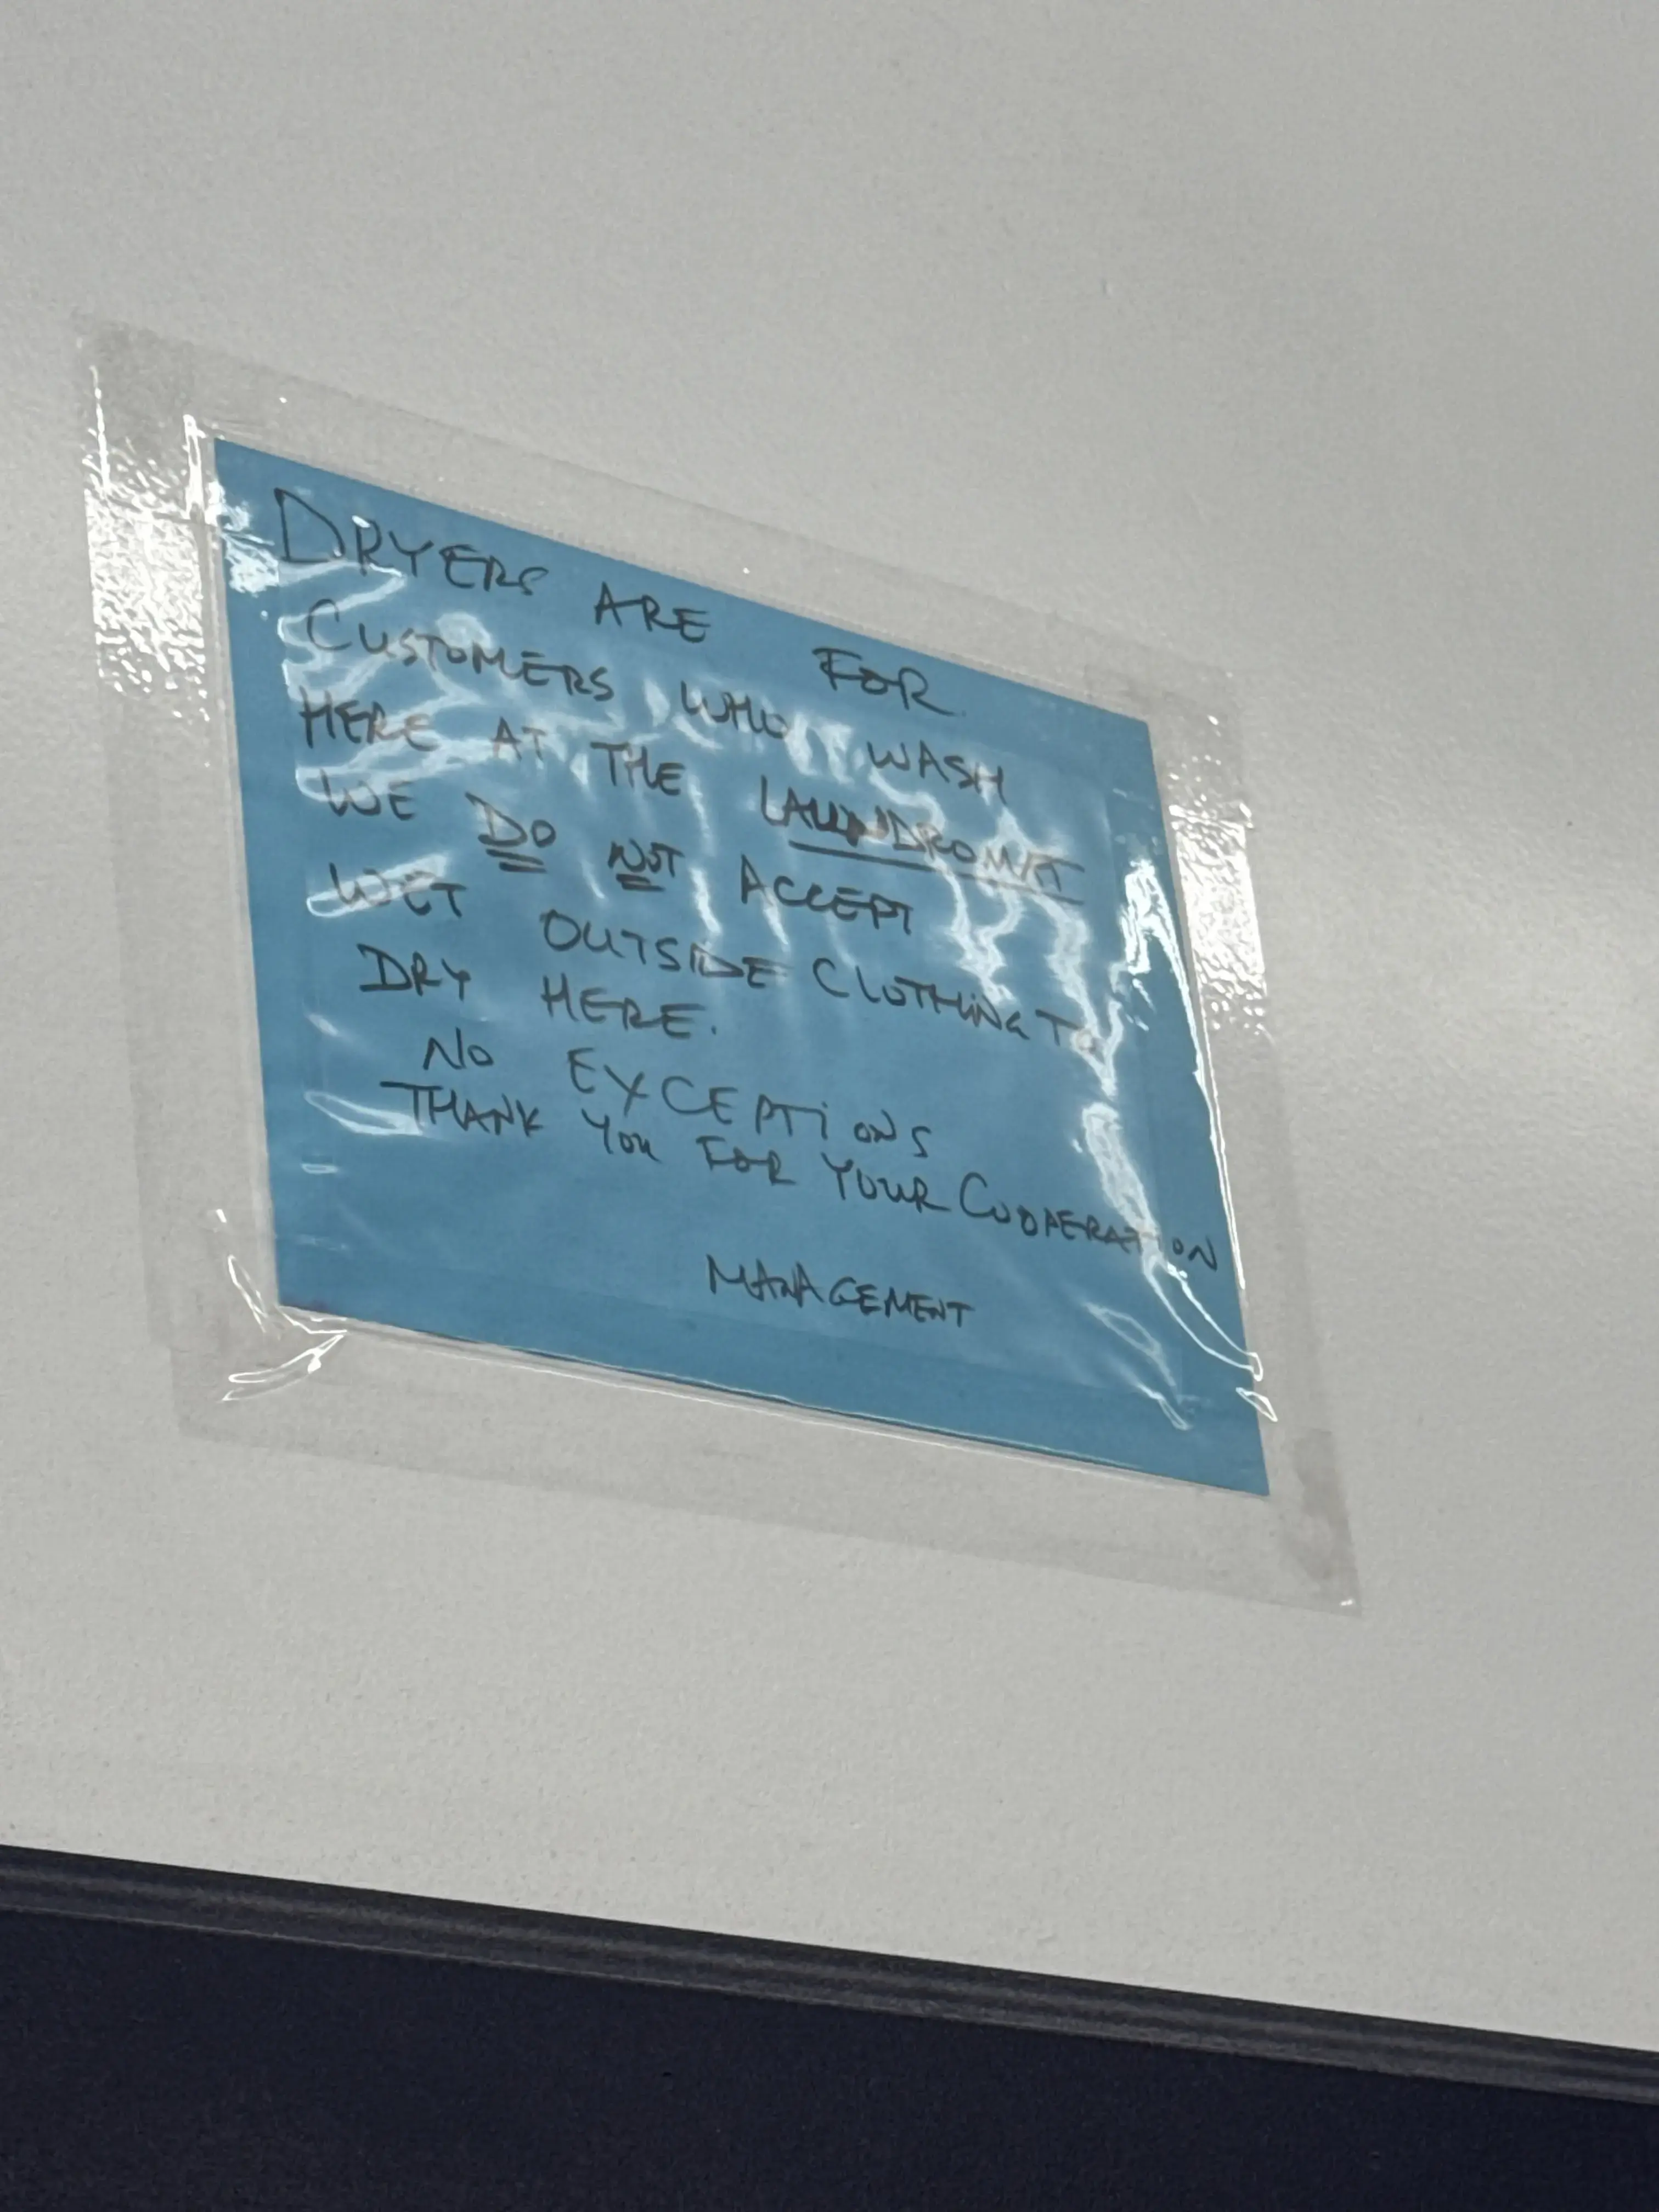 DRYERS ARE FOR
CUSTOMERS WHO WASH
HERE AT THE LAUNDROMAT
WE DO NOT ACCEPT
WET OUTSIDE CLOTHING TO
DRY HERE.
NO EXCEPTIONS
THANK YOU FOR YOUR COOPERATION
MANAGEMENT